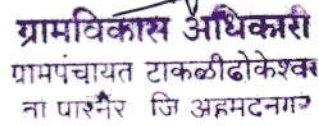 ग्रामविकास अधिकारी
ग्रामपंचायत टाकळीढोकेश्वर
ता पारनेर जि अहमदनगर